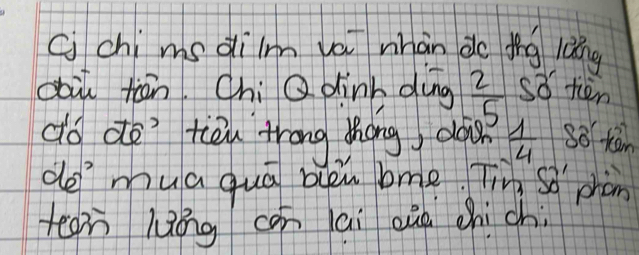 Cj chi ms đi lm và nhận dc thg lương
đầu tiên. Chi Q định dùng 2/5 số tiền
đó để tiêu trong tháng, dành 1/4 số tiền
để mua quà biếu bme. Tìm số phần
tiền lương còn lại của chị chi